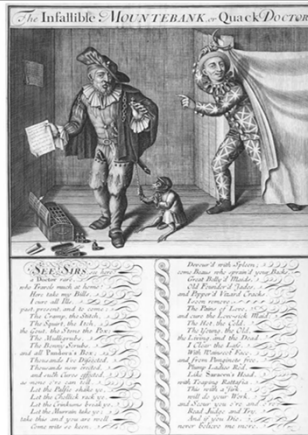 The Infallible MOUNTEBANK, or Quack DOCTOR
SEE SIRS, see here!
a Doctor rare,
who Travels much at home!
Here take my Bills,
I cure all Ills,
past, present, and to come;
The Cramp, the Stitch,
The Squirt, the Itch,
the Gout, the Stone, the Pox;
The Mulligrubs,
The Bonny Scrubs,
and all Pandora's Box;
Thousands I've Dissected,
Thousands new erected,
and such Cures effected,
as none e're can tell.
Let the Palsie shake ye,
Let the Chollick rack ye,
Let the
Let the Murrain take ye,
take this and you are well.
Come wits so keen,
Devour'd with Spleen,
come Beaus who sprain'd your Backs,
Great Belly'd Maids,
Old Founder'd Jades,
and Pepper'd Vizard Cracks.
I soon remove
The Pains of Love,
and cure the Love-sick Maid;
The Hot, the Cold,
The Young, the Old,
the Living, and the Dead.
I Clear the Lass,
With Wainscot Face,
and from Pimginets free,
Plump Ladies Red,
Like Saracen's Head,
with Toaping Rattafia.
This with a Jirk,
will do your Work,
and Scour you o're and o're,
Read, Judge and Try,
And if you Die,
never believe me more.